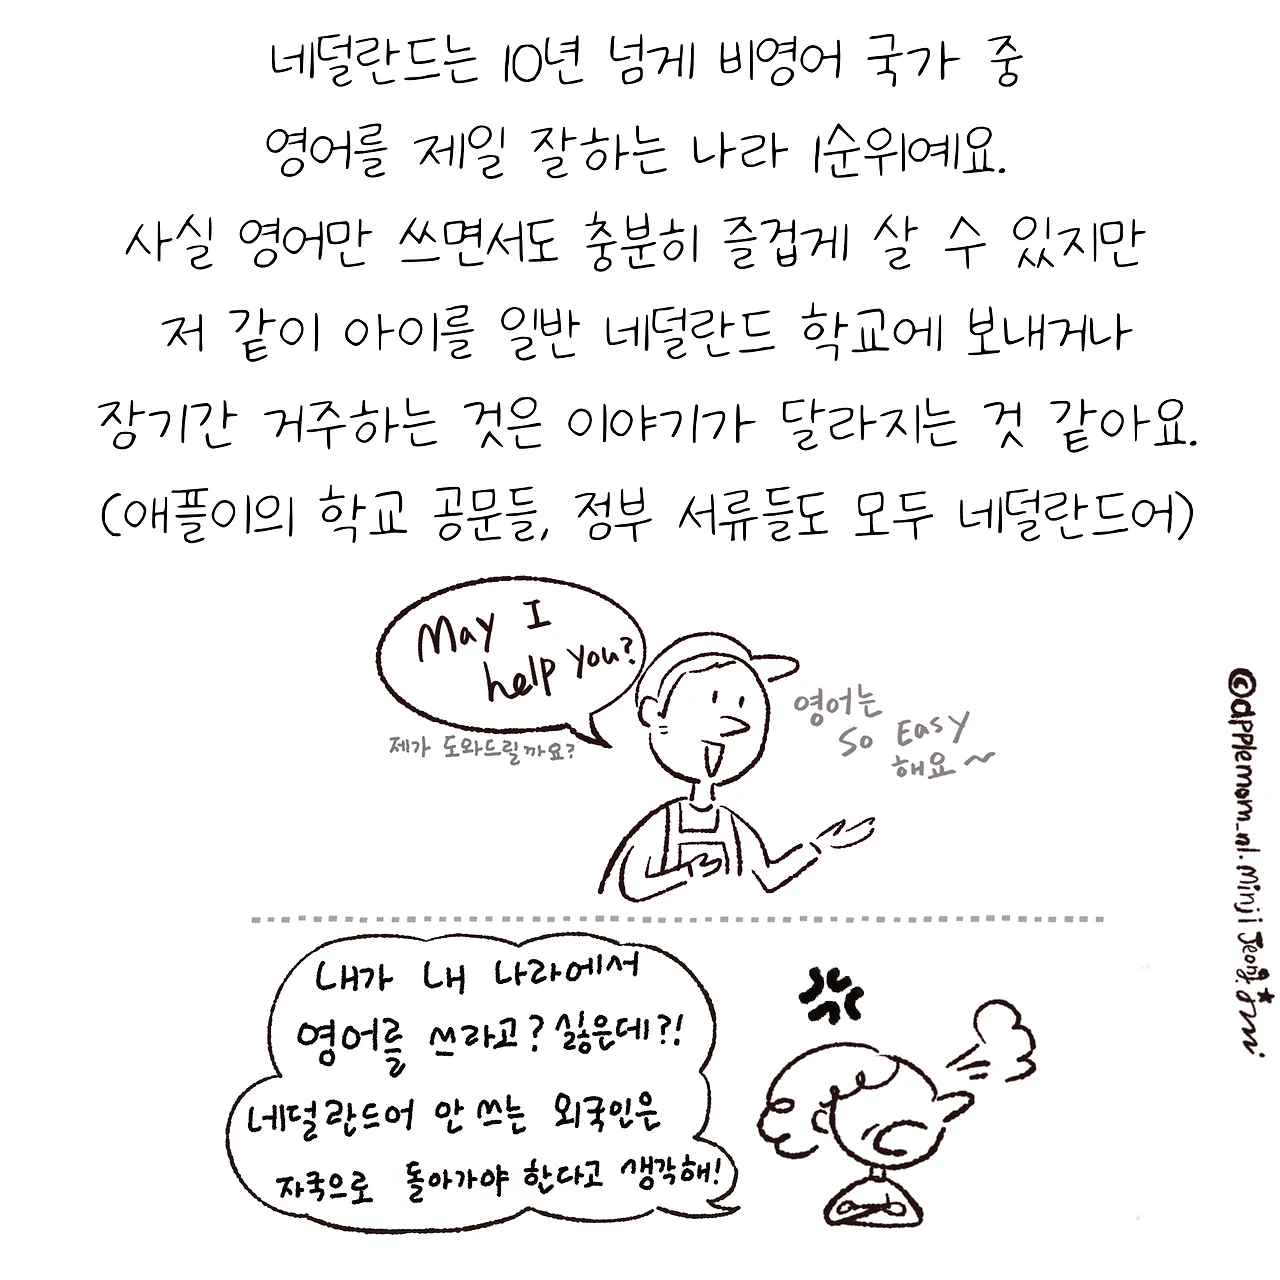 네덜란드는 10년 넘게 비영어 국가 중
영어를 제일 잘하는 나라 1순위예요.
사실 영어만 쓰면서도 충분히 즐겁게 살 수 있지만
저 같이 아이를 일반 네덜란드 학교에 보내거나
장기간 거주하는 것은 이야기가 달라지는 것 같아요.
(애플이의 학교 공문들, 정부 서류들도 모두 네덜란드어)
May I
help you?
제가 도와드릴까요?
영어는
so Easy
해요~
내가 내 나라에서
영어를 쓰라고? 싫은데?!
네덜란드어 안 쓰는 외국인은
자국으로 돌아가야 한다고 생각해!
©applemom_nl. Minji Jeong.